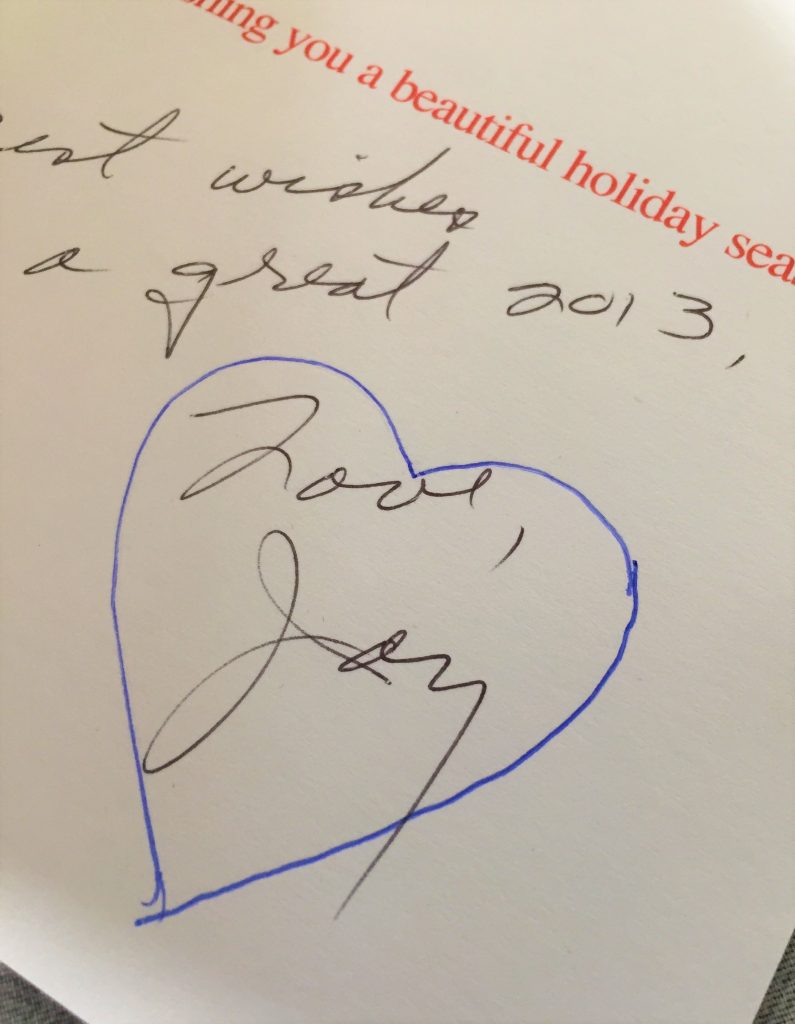 hing you a beautiful holiday sea
est wishes
a great 2013,
Love,
Joy